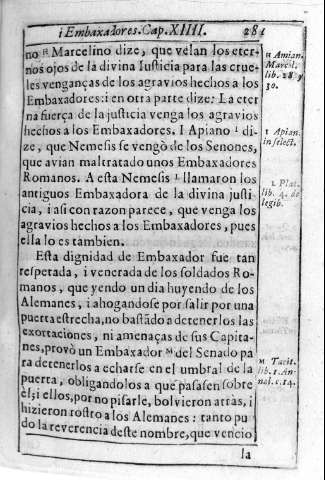 i Embaxadores. Cap. XIIII. 281
no ᴴ Marcelino dize, que velan los eter-
nos ojos de la divina Iusticia para las crue-
les venganças de los agravios hechos a los
Embaxadores: i en otra parte dize: La eter
na fuerça de la justicia venga los agravios
hechos a los Embaxadores. I Apiano ᴵ di-
ze, que Nemesis se vengò de los Senones,
que avian maltratado unos Embaxadores
Romanos. A esta Nemesis ᴸ llamaron los
antiguos Embaxadora de la divina justi-
cia, i asi con razon parece, que venga los
agravios hechos a los Embaxadores, pues
ella lo es tambien.
Esta dignidad de Embaxador fue tan
respetada, i venerada de los soldados Ro-
manos, que yendo un dia huyendo de los
Alemanes, i ahogandose por salir por una
puerta estrecha, no bastãdo a detenerlos las
exortaciones, ni amenaças de sus Capita-
nes, provò un Embaxador ᴹ del Senado pa
ra detenerlos a echarse en el umbral de la
puerta, obligandolos a que pasasen sobre
el; i ellos, por no pisarle, bolvieron atràs, i
hizieron rostro a los Alemanes: tanto pu
do la reverencia deste nombre, que vencio
la
H Amian.
Marcel.
lib. 28 y
30.
I Apian.
in select.
L Plat.
lib. 4. de
legib.
M Tacit.
lib. 1. An-
nal. c. 14.